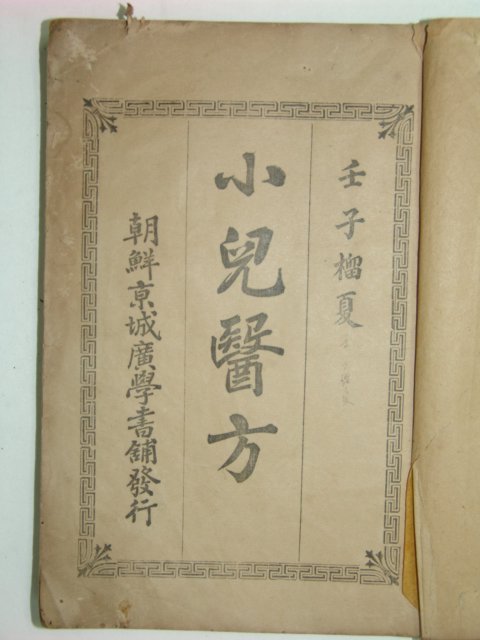 壬子榴夏
小兒醫方
朝鮮京城廣學書舖發行